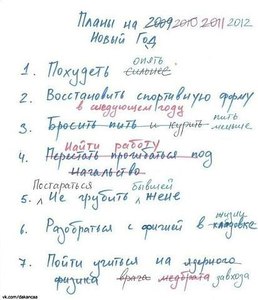 Планы на 2009 2010 2011 2012
Новый Год
опять
1. Похудеть сильнее
2. Восстановить спортивную форму
в следующем году
3. Бросить пить и курить пить меньше
Найти работу
4. Перестать прогибаться под
начальство
Постараться бывшей
5. Не грубить жене
жизни
6. Разобраться с фигнёй в кладовке
7. Пойти учиться на ядерного
физика врача медбрата завхоза
vk.com/dakancaa